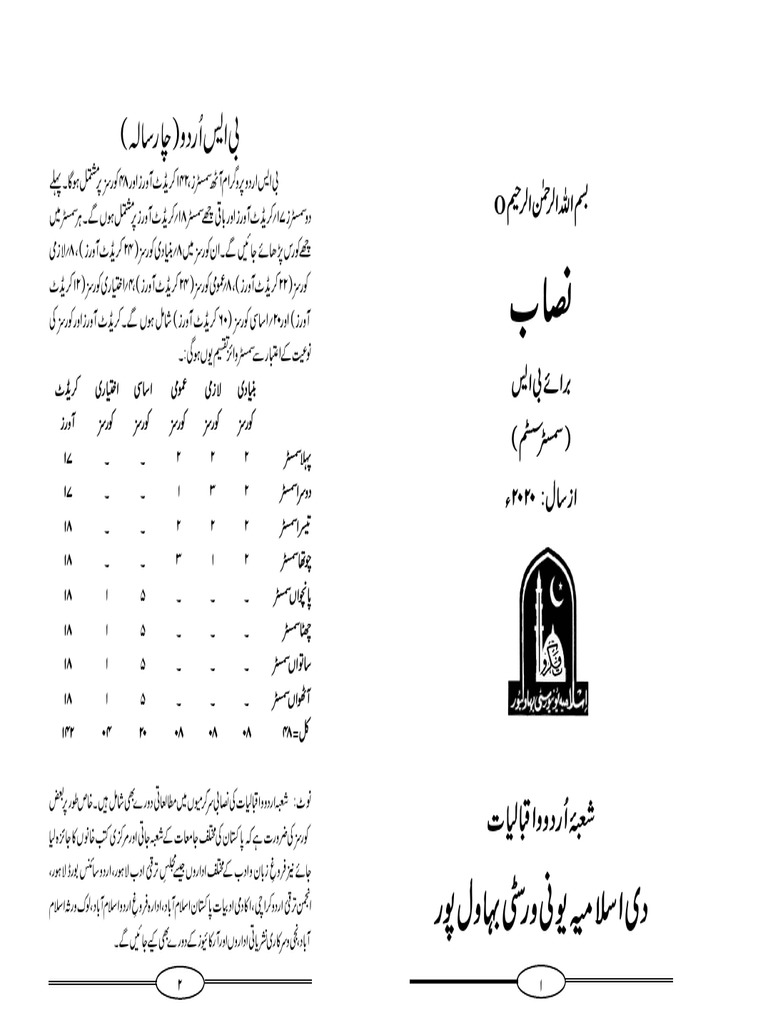 بسم اللہ الرحمٰن الرحیم 0
نصاب
برائے بی ایس
(سمسٹر سسٹم)
از سال: ۲۰۲۰ء
اسلامیہ یونیورسٹی بہاولپور
شعبۂ اُردو و اقبالیات
دی اسلامیہ یونی ورسٹی بہاول پور
۱
بی ایس اُردو (چار سالہ)
بی ایس اردو پروگرام آٹھ سمسٹرز، ۱۴۲ کریڈٹ آورز اور ۴۸ کورسز پر مشتمل ہوگا۔ پہلے
دو سمسٹرز ۱۷/ کریڈٹ آورز اور باقی چھے سمسٹر ۱۸/ کریڈٹ آورز پر مشتمل ہوں گے۔ ہر سمسٹر میں
چھے کورس پڑھائے جائیں گے۔ ان کورسز میں ۸/ بنیادی کورسز (۲۴ کریڈٹ آورز)، ۸/ لازمی
کورسز (۲۲ کریڈٹ آورز)، ۸/ عمومی کورسز (۲۴ کریڈٹ آورز)، ۴/ اختیاری کورسز (۱۲ کریڈٹ
آورز) اور ۲۰/ اساسی کورسز (۶۰ کریڈٹ آورز) شامل ہوں گے۔ کریڈٹ آورز اور کورسز کی
نوعیت کے اعتبار سے سمسٹر وائز تقسیم یوں ہوگی:۔
بنیادی لازمی عمومی اساسی اختیاری کریڈٹ
کورسز کورسز کورسز کورسز کورسز آورز
پہلا سمسٹر ۲ ۲ ۲ - - ۱۷
دوسرا سمسٹر ۲ ۳ ۱ - - ۱۷
تیسرا سمسٹر ۲ ۲ ۲ - - ۱۸
چوتھا سمسٹر ۲ ۱ ۳ - - ۱۸
پانچواں سمسٹر - - - ۵ ۱ ۱۸
چھٹا سمسٹر - - - ۵ ۱ ۱۸
ساتواں سمسٹر - - - ۵ ۱ ۱۸
آٹھواں سمسٹر - - - ۵ ۱ ۱۸
کل=۴۸ ۰۸ ۰۸ ۰۸ ۲۰ ۰۴ ۱۴۲
نوٹ: شعبہ اردو و اقبالیات کی نصابی سرگرمیوں میں مطالعاتی دورے بھی شامل ہیں۔ خاص طور پر بعض
کورسز کی ضرورت ہے کہ پاکستان کی مختلف جامعات کے شعبہ جاتی اور مرکزی کتب خانوں کا جائزہ لیا
جائے نیز فروغ زبان و ادب کے مختلف اداروں جیسے مجلس ترقیٔ ادب لاہور، اردو سائنس بورڈ لاہور،
انجمن ترقیٔ اردو کراچی، اکادمی ادبیات پاکستان اسلام آباد، ادارہ فروغِ اردو اسلام آباد، لوک ورثہ اسلام
آباد، نجی و سرکاری نشریاتی اداروں اور آرکائیوز کے دورے بھی کیے جائیں گے۔
۲